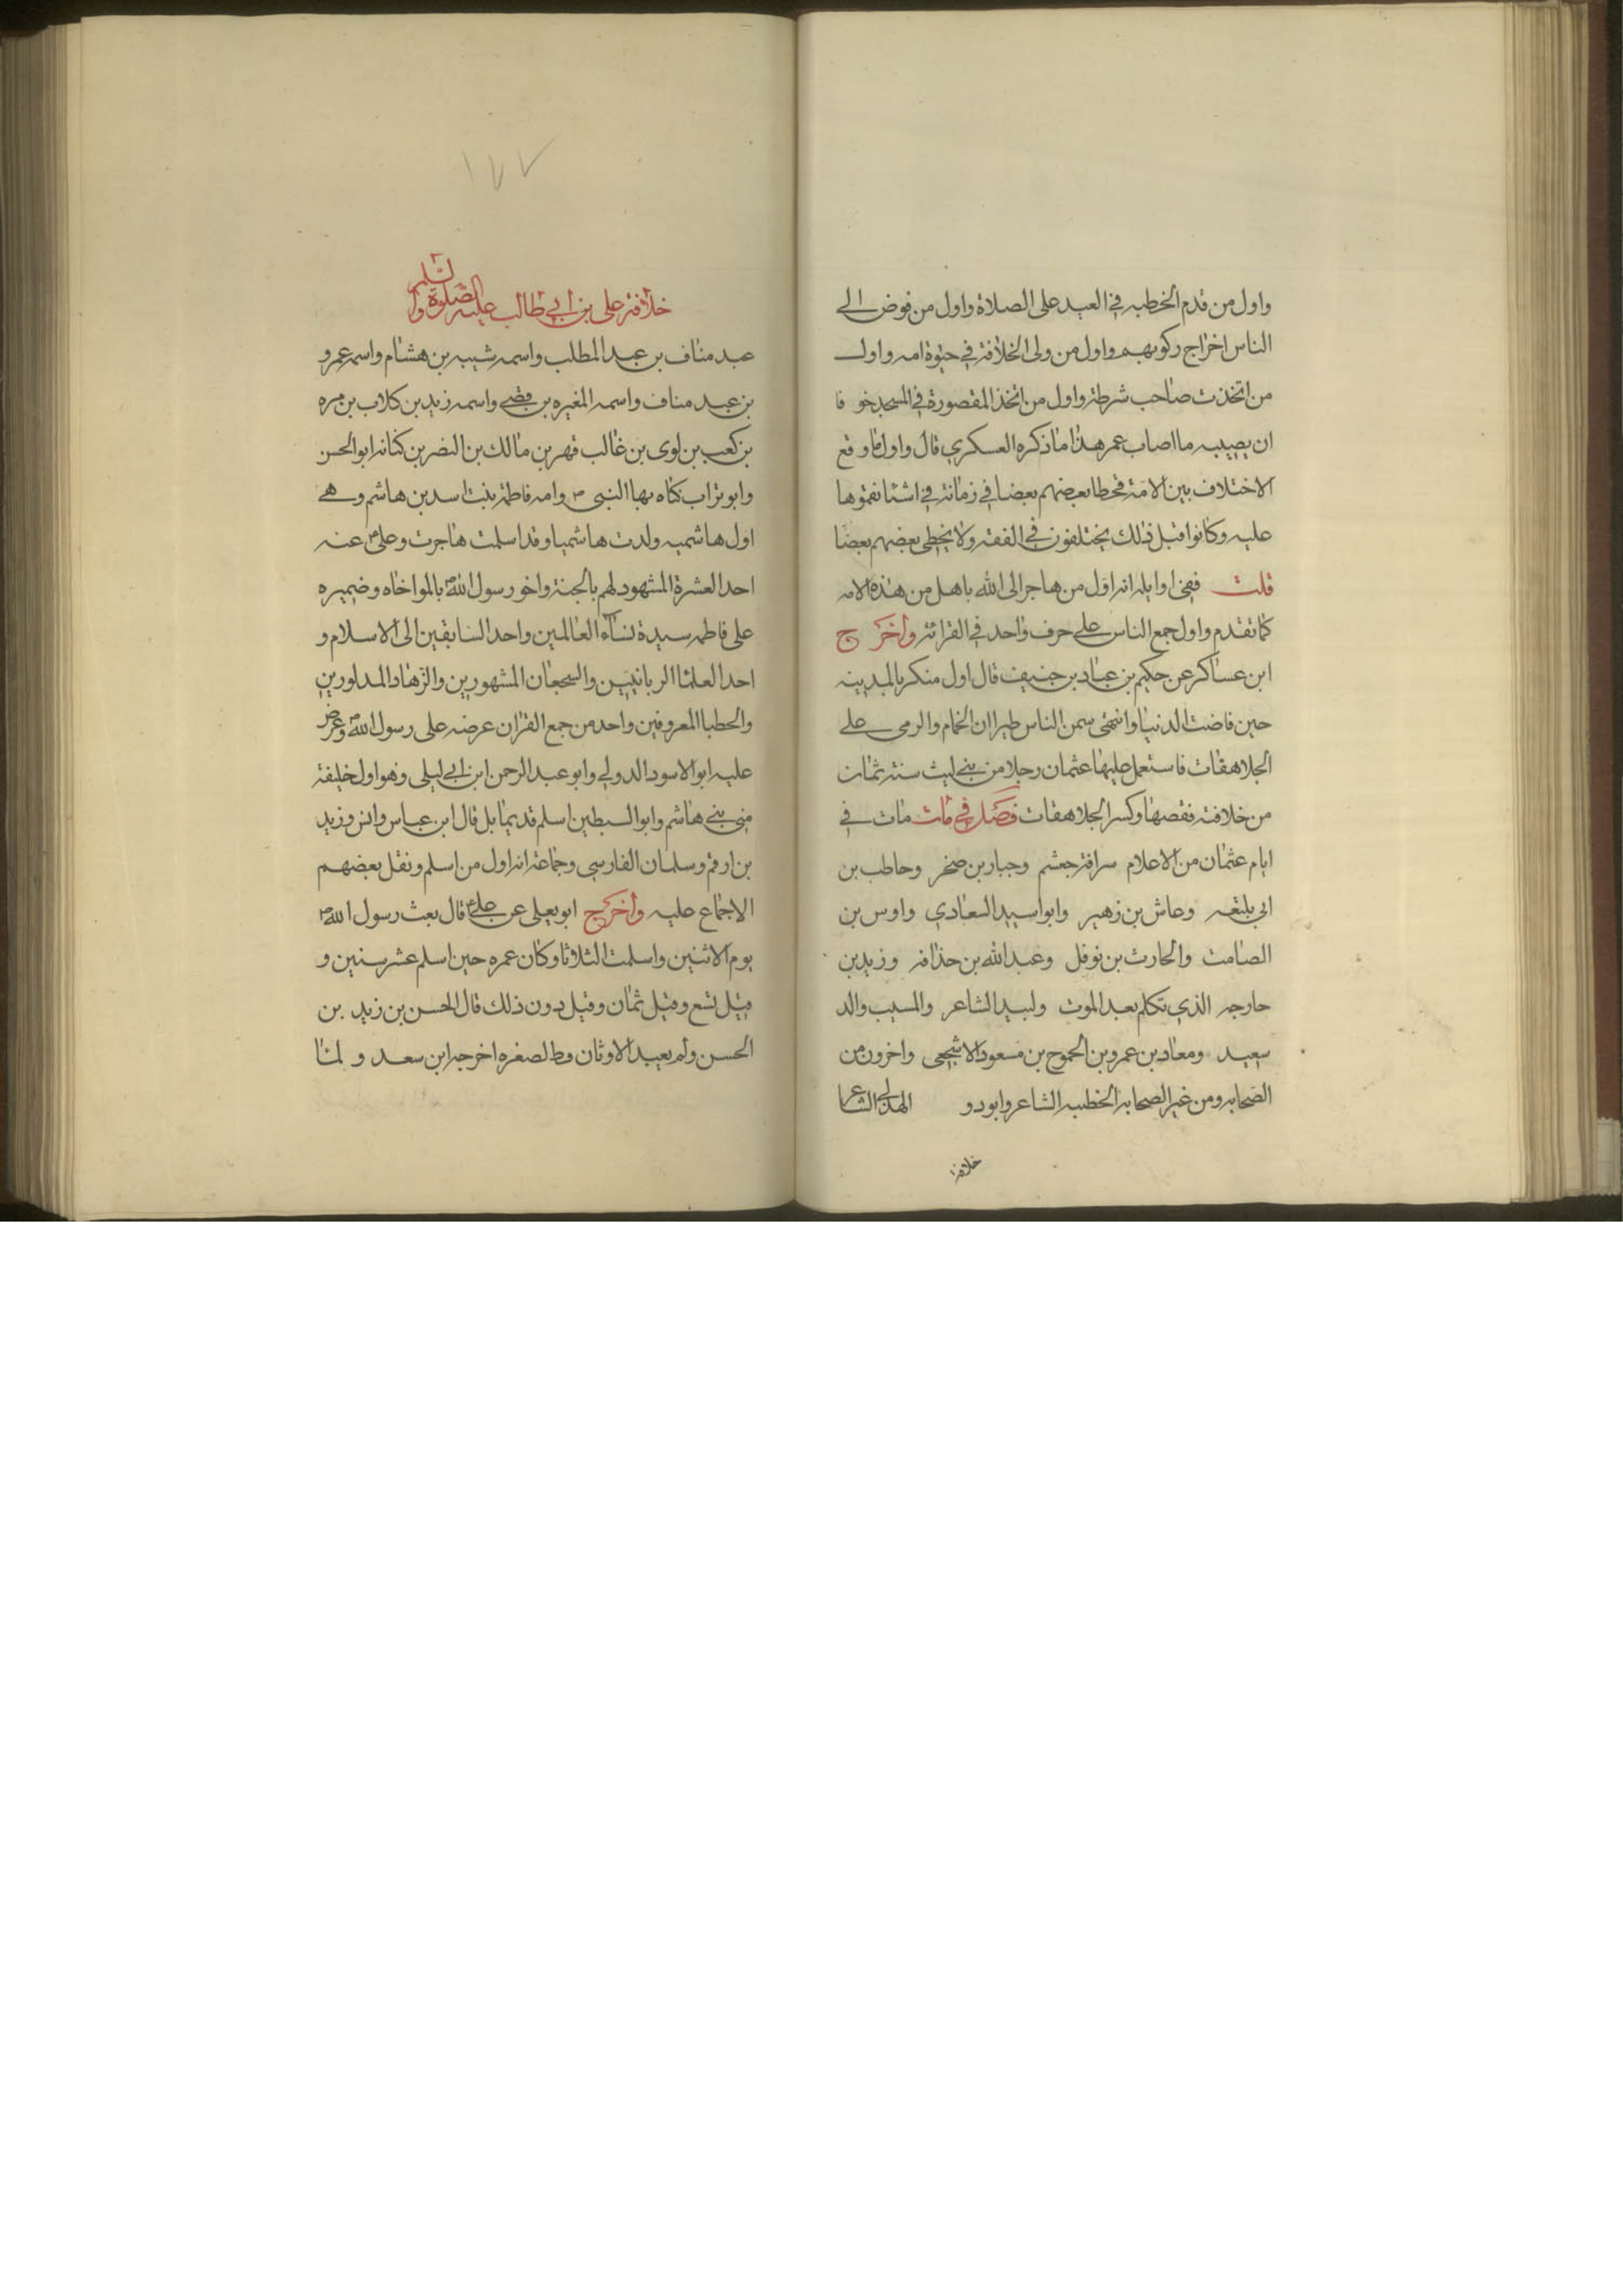 واول من قدم الخطبه في العيد على الصلاة واول من فوض الى
الناس اخراج زكوتهم واول من ولى الخلافة في حيوة امه واول
من اتخذت صاحب شرطة واول من اتخذ المقصورة في المسجد خو فا
ان يصيبه ما اصاب عمر هذا ما ذكره العسكري قال واول ما وقع
الاختلاف بين الامة فخطا بعضهم بعضا في زمانة في اشيا نقموها
عليه وكانوا قبل ذلك يختلفون في الفقه ولا يخطى بعضهم بعضا
قلت ففى اوايله انه اول من هاجر الى الله باهل من هذه الامه
كما تقدم واول جمع الناس على حرف واحد في القرائة واخرج
ابن عساكر عن حكيم بن عباد بن حنيف قال اول منكر بالمدينه
حين فاضت الدنيا وانتهى سمن الناس طيران الحمام والرمى على
الجلاهقات فاستعمل عليها عثمان رجلا من بنى ليث سنة ثمان
من خلافته فقصها وكسر الجلاهقات فصل في مات مات في
ايام عثمان من الاعلام سراقة جعشم وجبار بن صخر وحاطب بن
ابى بلتعه وعاش بن زهير وابو اسيد الساعدي واوس بن
الصامت والحارث بن نوفل وعبد الله بن حذافه وزيد بن
خارجه الذي تكلم بعد الموت ولبيد الشاعر والمسيب والد
سعيد ومعاد بن عمرو بن الجموح بن مسعود الاشجعى واخرون من
الصحابه ومن غير الصحابه الخطيبه الشاعر وابو دو الهذلى الشاعر
خلافة
١٧٧
خلافة على بن ابي طالب عليه الصلوة والسلم
عبد مناف بن عبد المطلب واسمه شيبه بن هشام واسمه عمرو
بن عبد مناف واسمه المغيره بن قصى واسمه زيد بن كلاب بن مره
بن كعب بن لوى بن غالب فهر بن مالك بن النضر بن كنانه ابو الحسن
وابو تراب كناه بها النبى ص وامه فاطمة بنت اسد بن هاشم وهى
اول هاشميه ولدت هاشميا وقد اسلمت هاجرت وعلى عنه
احد العشرة المشهود لهم بالجنة واخو رسول الله ص بالمواخاه وضميره
على فاطمه سيدة نساء العالمين واحد السابقين الى الاسلام و
احد العلما الربانيين والسجعان المشهورين والزهاد المداورين
والخطبا المعروفين واحد من جمع القران عرضه على رسول الله ص وعرض
عليه ابو الاسود الدولى وابو عبد الرحمن ابن ابي ليلى وهو اول خليفة
من بنى هاشم وابو السبطين اسلم قديما بل قال ابن عباس وانس وزيد
بن ارقم وسلمان الفارسى وجماعة انه اول من اسلم ونقل بعضهم
الاجماع عليه واخرج ابو يعلى عن على ع قال بعث رسول الله ص
يوم الاثنين واسلمت الثلاثا وكان عمره حين اسلم عشر سنين و
قيل تسع وقيل ثمان وقيل دون ذلك قال الحسن بن زيد بن
الحسن ولم يعبد الاوثان قط لصغره اخرجه ابن سعد و لما